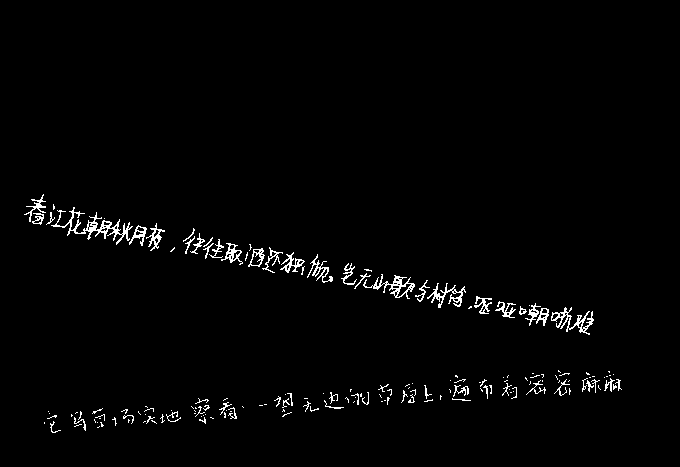 春江花朝秋月夜，往往取酒还独倾。岂无山歌与村笛，呕哑嘲哳难
它当草场实地察看.一望无边的草原上,遍布着密密麻麻